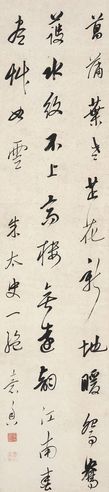 菖蒲葉老芷花新地暖鴛鴦
護水紋不上高樓無遠江南春
盡草如雲 朱太史一絕